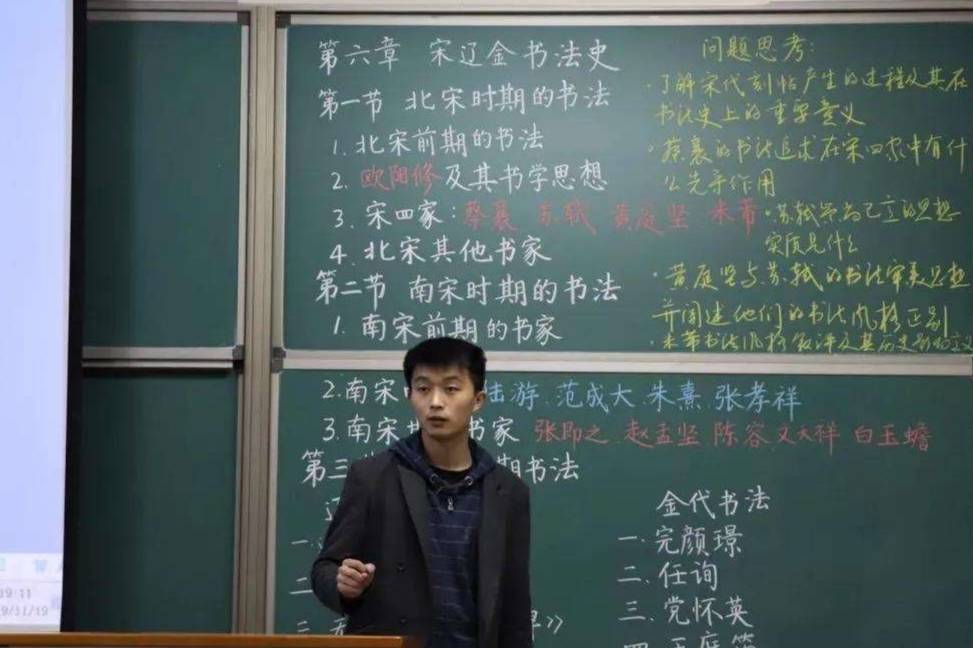 第六章 宋辽金书法史
第一节 北宋时期的书法
1. 北宋前期的书法
2. 欧阳修及其书学思想
3. 宋四家：蔡襄 苏轼 黄庭坚 米芾
4. 北宋其他书家
第二节 南宋时期的书法
1. 南宋前期的书家
2. 南宋 陆游、范成大、朱熹、张孝祥
3. 南宋 书家 张即之、赵孟坚 陈容 文天祥 白玉蟾
第三 期书法
一、
二、
三、
》
金代书法
一. 完颜璟
二. 任询
三. 党怀英
四. 王庭筠
问题思考：
·了解宋代刻帖产生的过程及其在
书法史上的重要意义
·蔡襄的书法追求在宋四家中有什
么先导作用
·苏轼 的思想
实质是什么
·黄庭坚与苏轼的书法审美思想
并阐述他们的书法风格区别
·米芾书法风格 及其历史
19:11
9/11/19